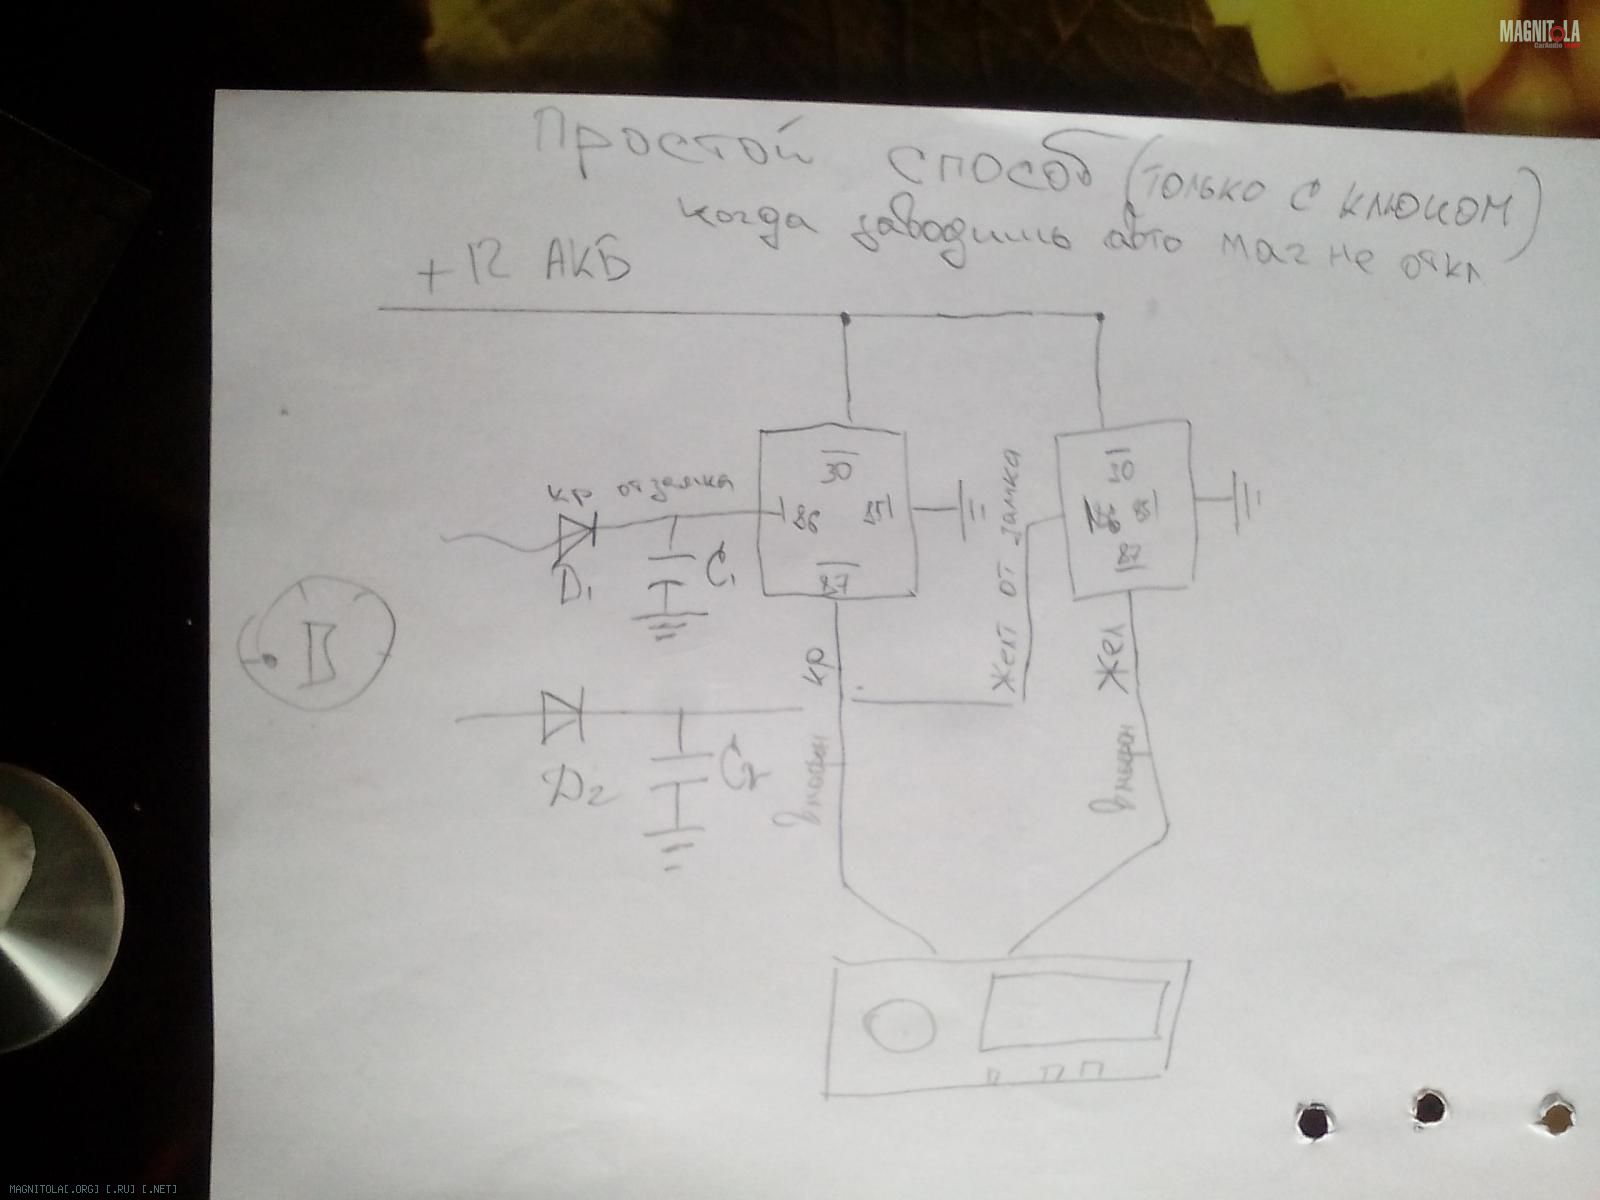 MAGNITOLA
CarAudio
Простой способ (только с ключом)
когда заводишь авто маг не откл
+12 АКБ
кр от замка
30
86
85
87
D1
C1
Желт от замка
30
86
85
87
кр
Жел
D2
C2
MAGNITOLA[.ORG] [.RU] [.NET]